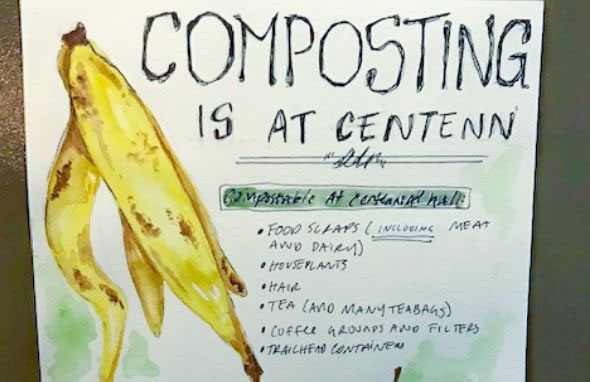 COMPOSTING
IS AT CENTENN
Compostable At Centennial Hall:
• FOOD SCRAPS (INCLUDING MEAT
AND DAIRY)
• HOUSEPLANTS
• HAIR
• TEA (AND MANY TEABAGS)
• COFFEE GROUNDS AND FILTERS
• TRAILHEAD CONTAINERS